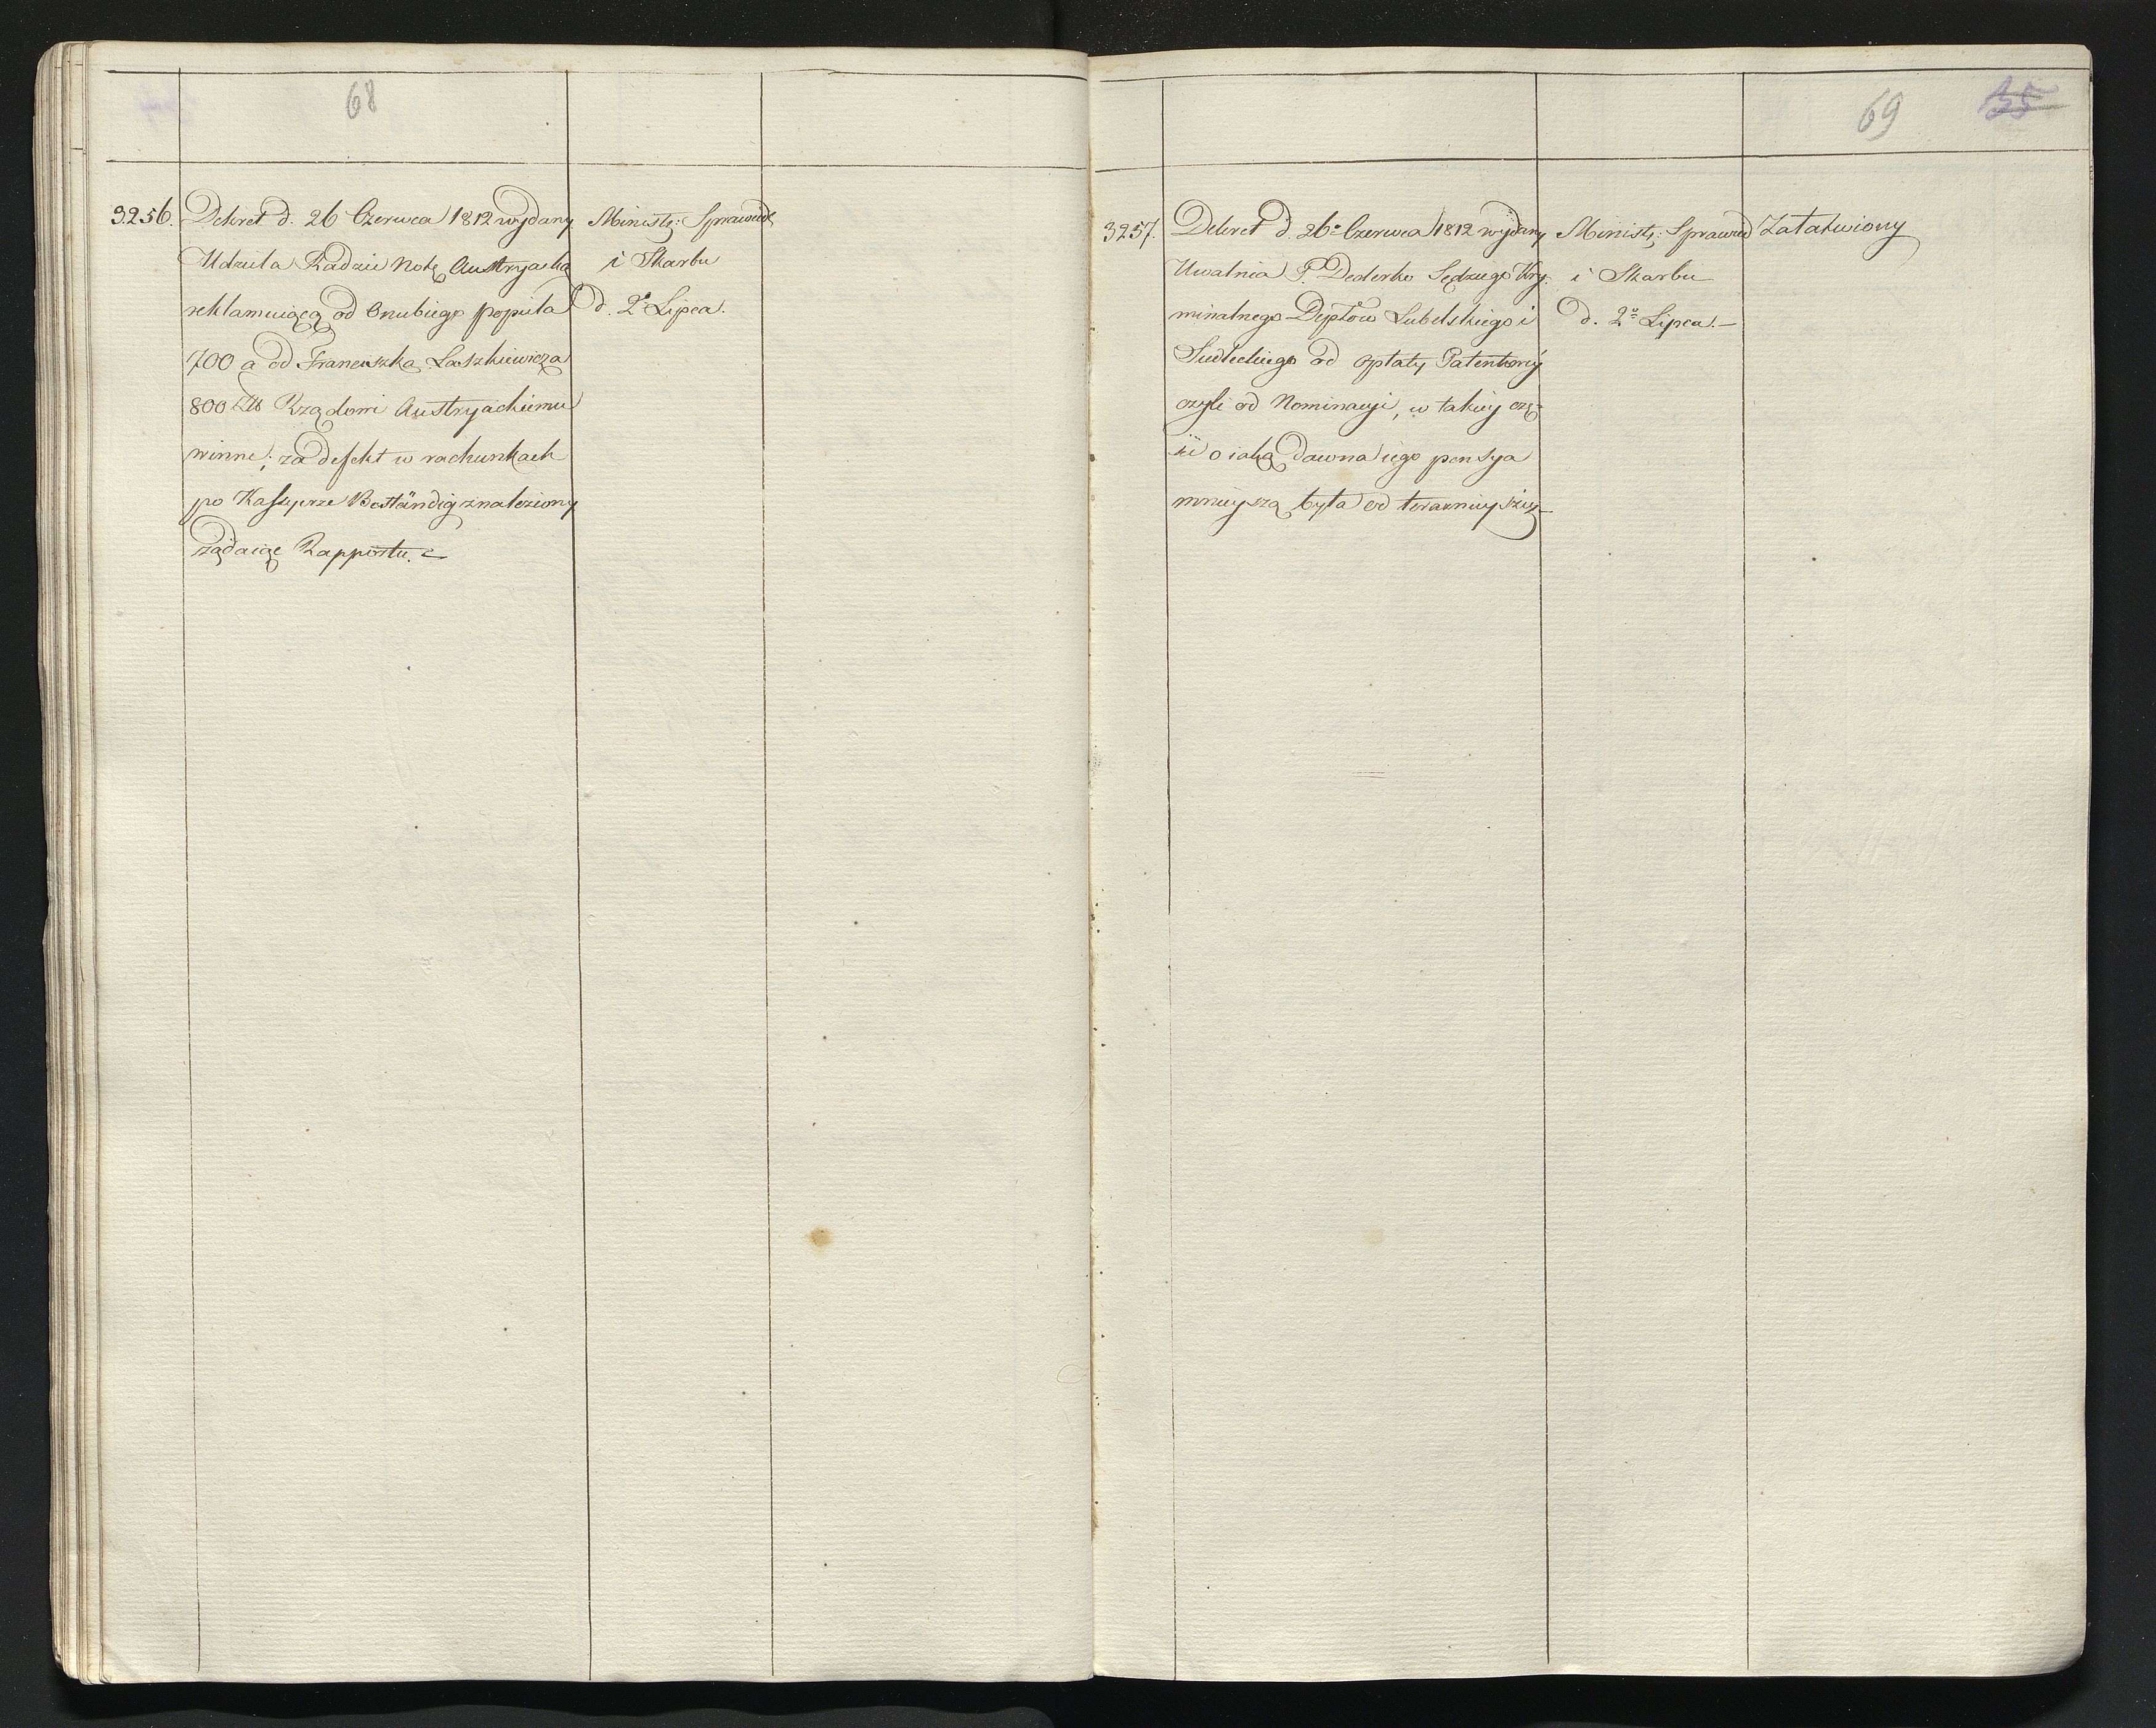 68
3256. Dekret d. 26 Czerwca 1812 wydany
Udziela Radzie Notę Austryacką
reklamuiącą od Grubiego popiela
700 a od Franciszka Laszkiewicza
800 Zł Rządowi Austryackiemu
winne; za defekt w rachunkach
po Kassyerze Beständig znaleziony
żądaiąc Rapportu.
Ministr: Sprawiedl
i Skarbu
d. 2o Lipca.
69 35
3257. Dekret d. 26o Czerwca 1812 wydany
Uwalnia P. Dederko Sędziego Kry-
minalnego Deptów Lubelskiego i
Siedleckiego od opłaty Patentowéy
czyli od Nominacyi, w takiey czę-
ści o iaką dawna iego pensya
mnieyszą była od teraznieyszéy
Ministr: Sprawied
i Skarbu
d. 2o Lipca.
Załatwiony